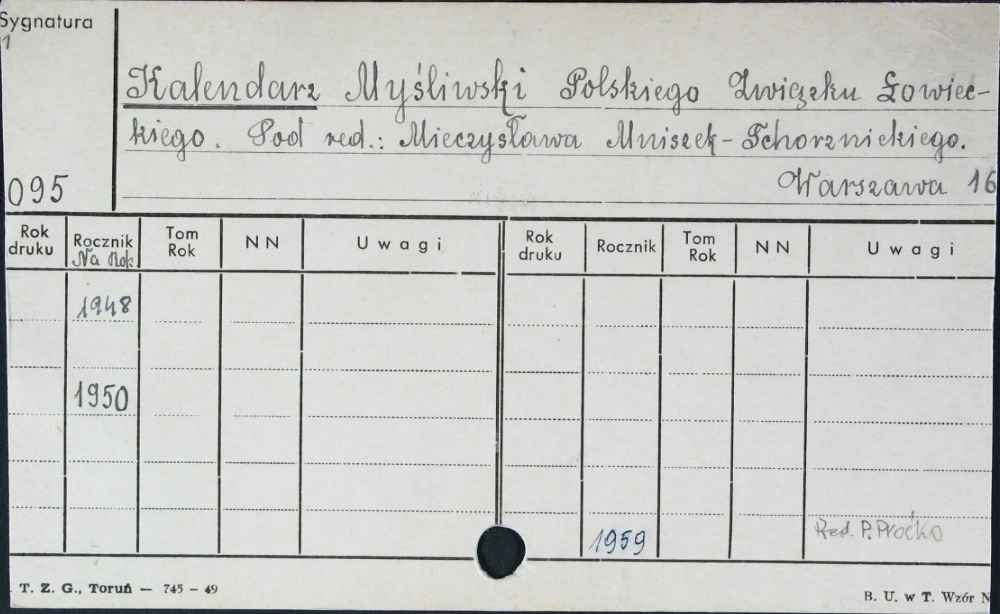 Sygnatura
1
Kalendarz Myśliwski Polskiego Związku Łowiec-
kiego. Pod red.: Mieczysława Mniszek-Tchorznickiego.
095
Warszawa 16
Rok druku Rocznik Na Rok Tom Rok NN Uwagi Rok druku Rocznik Tom Rok NN Uwagi
1948
1950
1959 Red. P. Płocko
T. Z. G., Toruń — 745 - 49
B. U. w T. Wzór N